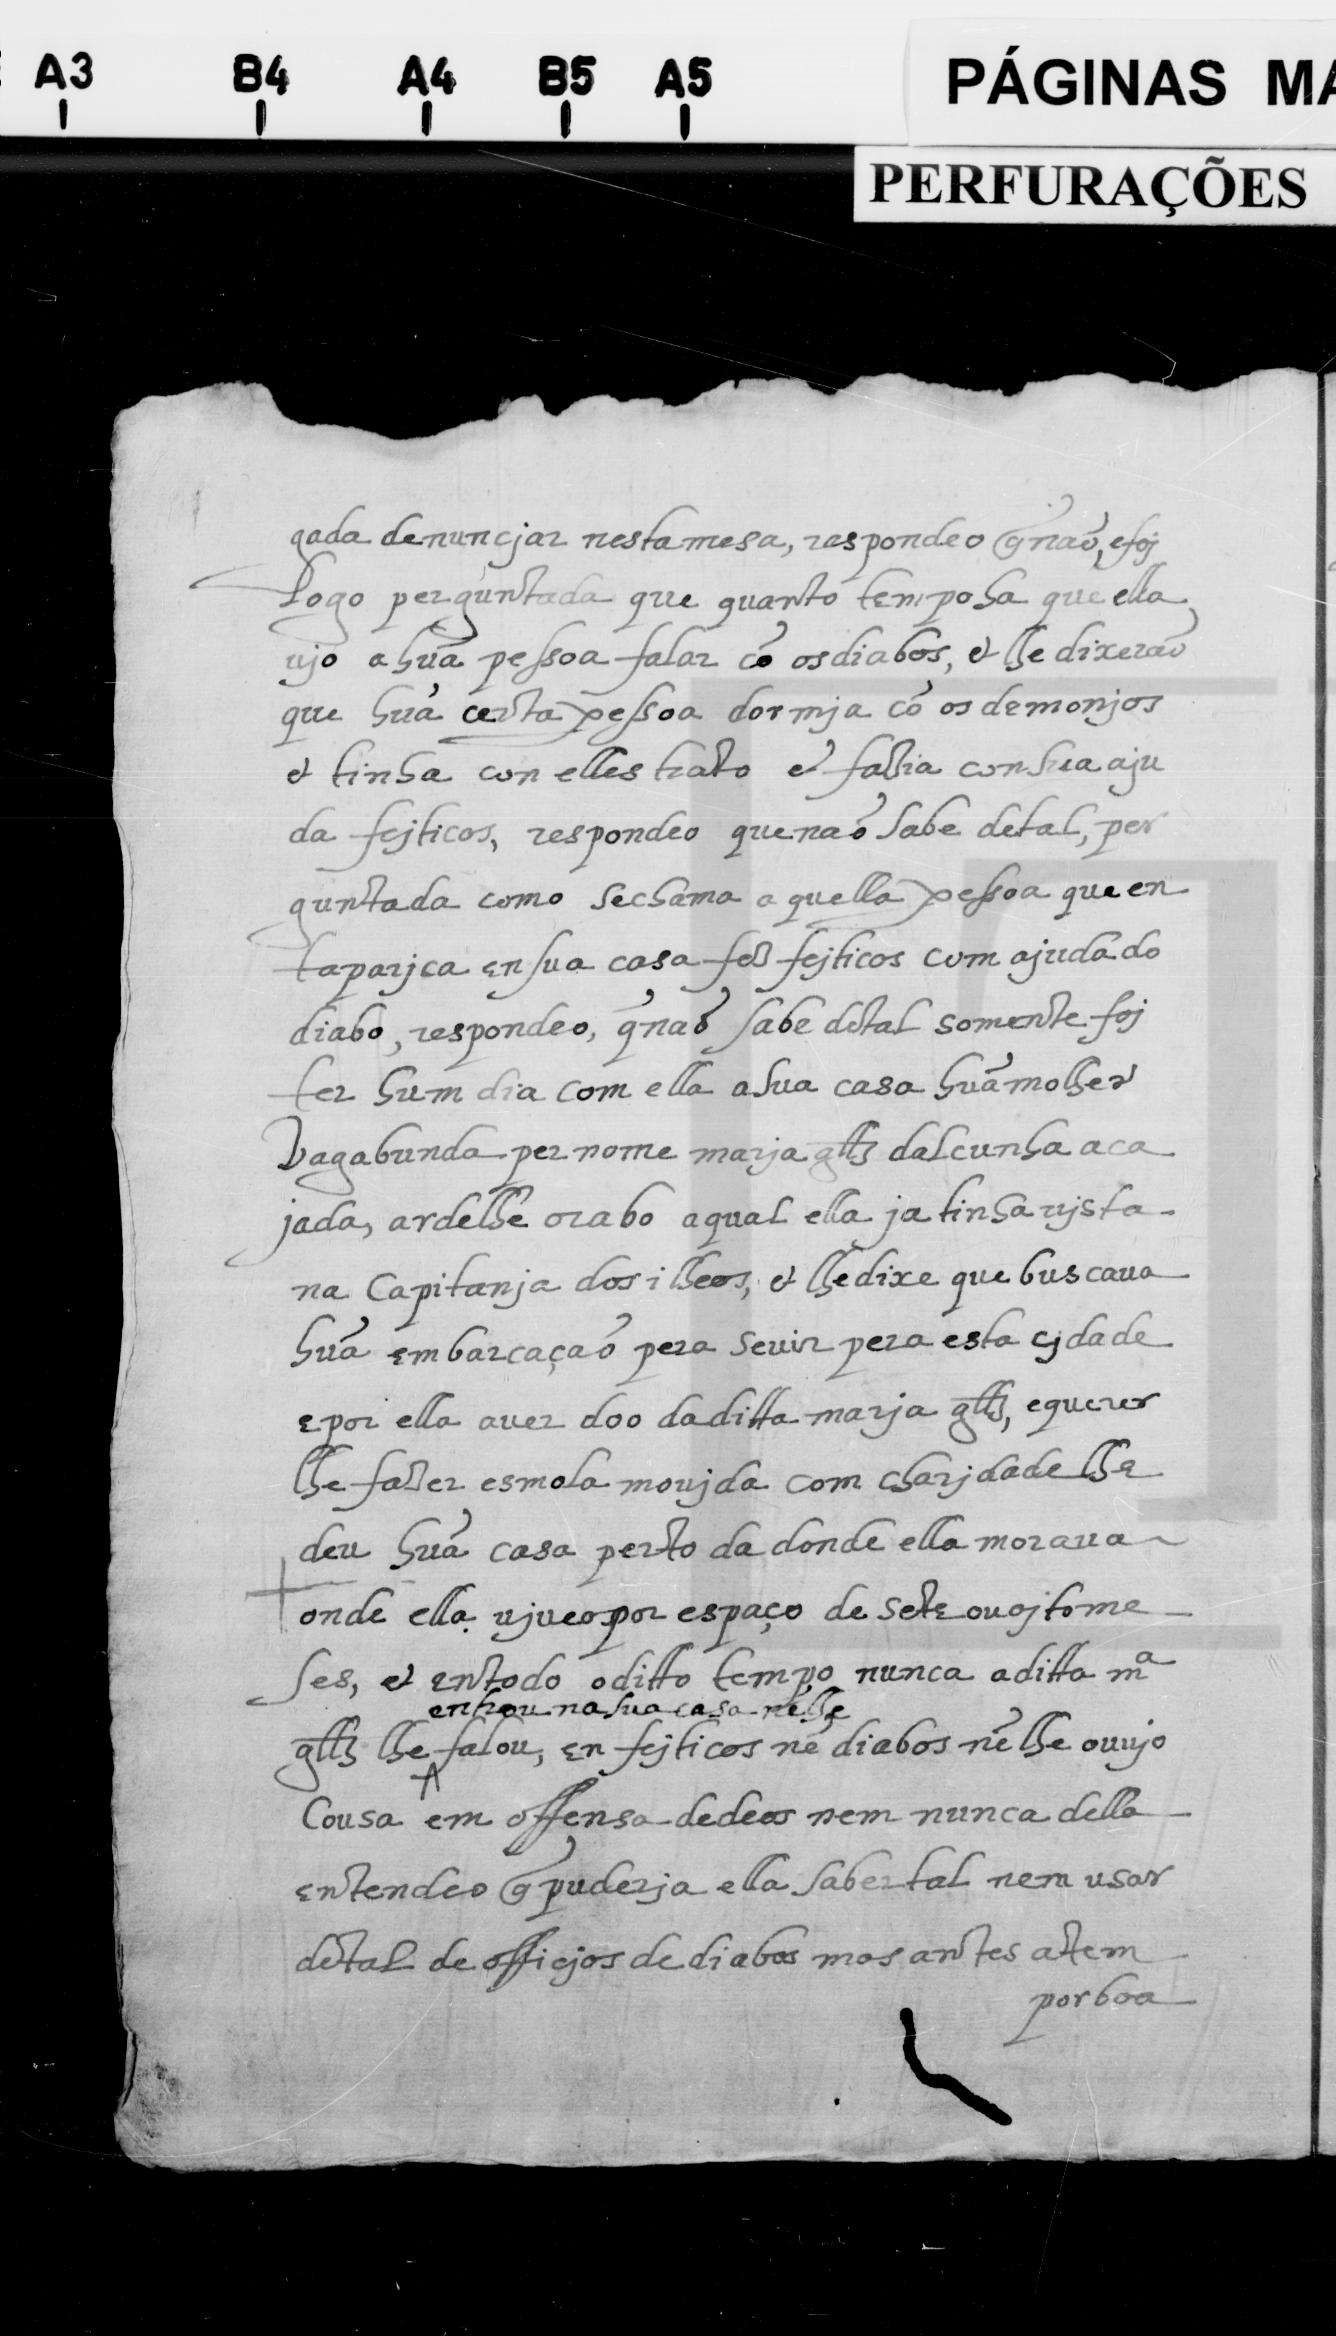 A3 B4 A4 B5 A5
PÁGINAS MA
PERFURAÇÕES
gada denunçjar nesta mesa, respondeo q̃ naõ, e foj
Logo perguntada que quanto tempo ha que ella
ujo a huã pessoa falar cõ os diabos, et lhe dixeraõ
que huã certa pessoa dormja cõ os demonjos
et tinha con elles trato et fazia con sua aju
da fejticos, respondeo que naõ sabe de tal, per
guntada como se chama aquella pessoa que en
taparjca en sua casa fez fejticos com ajuda do
diabo, respondeo, q̃ naõ sabe de tal somente foj
ter hum dia com ella a sua casa huã molher
Vagabunda per nome marja glz̃ dalcunha aca
jada, ardelhe o rabo a qual ella ja tinha vjsta
na Capitanja dos ilheos, et lhe dixe que buscaua
huã embarcaçaõ pera se uir pera esta cjdade
e por ella auer doo da ditta marja glz̃, e querer
lhe fazer esmola moujda com charjdade lhe
deu huã casa perto da donde ella moraua
onde ella ujueo por espaço de sete ou ojto me
ses, et en todo o ditto tempo nunca a ditta mᵃ
entrou na sua casa nẽ lhe
glz̃ lhe falou, en fejticos nẽ diabos nẽ lhe ouujo
Cousa em offensa de deos nem nunca della
entendeo q̃ puderja ella saber tal nem usar
de tal de officjos de diabos mas antes a tem
por boa